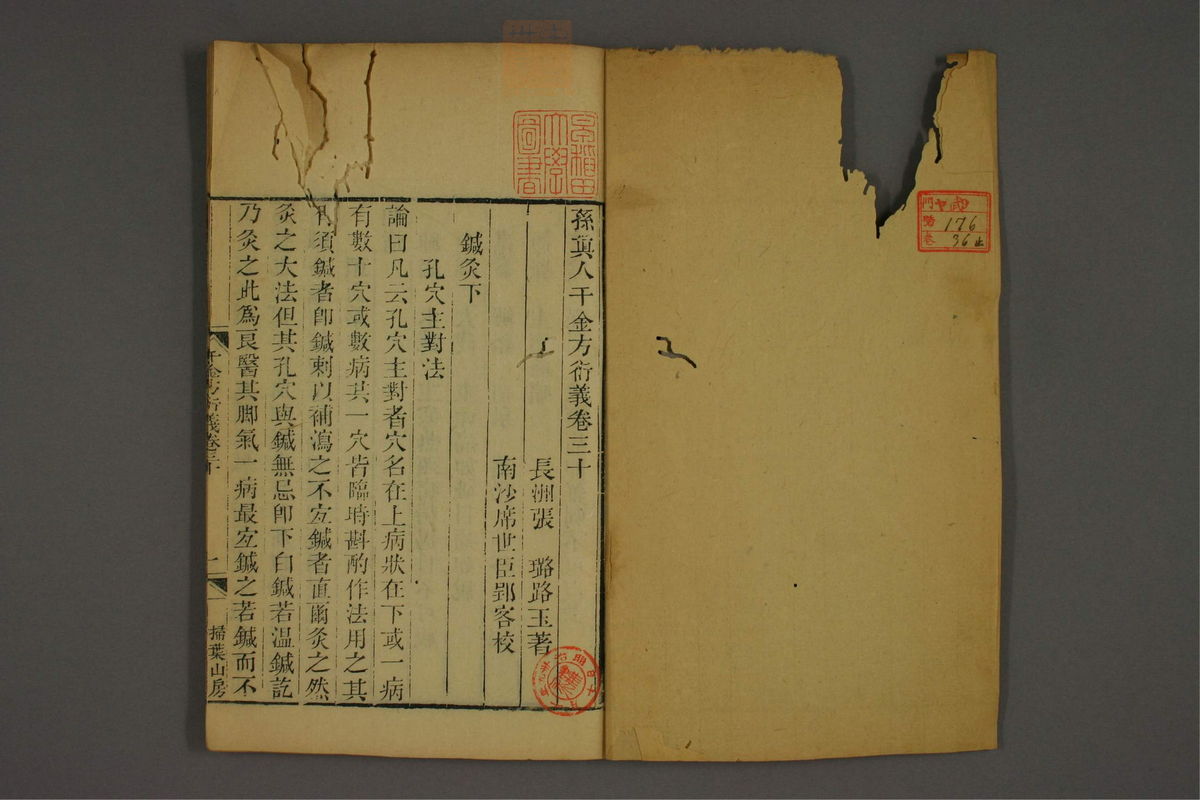 孫真人千金方衍義卷三十
長洲張　璐路玉著
南沙席世臣郢客校
鍼灸下
孔穴主對法
論曰凡云孔穴主對者穴名在上病狀在下或一病
有數十穴或數病共一穴皆臨時斟酌作法用之其
有須鍼者卽鍼刺以補瀉之不宐鍼者直爾灸之然
灸之大法但其孔穴與鍼無忌卽下白鍼若溫鍼訖
乃灸之此爲良醫其脚氣一病最宐鍼之若鍼而不
千金方衍義卷三十
一
掃葉山房
早稻田
大學
圖書
門
號
卷
176
36